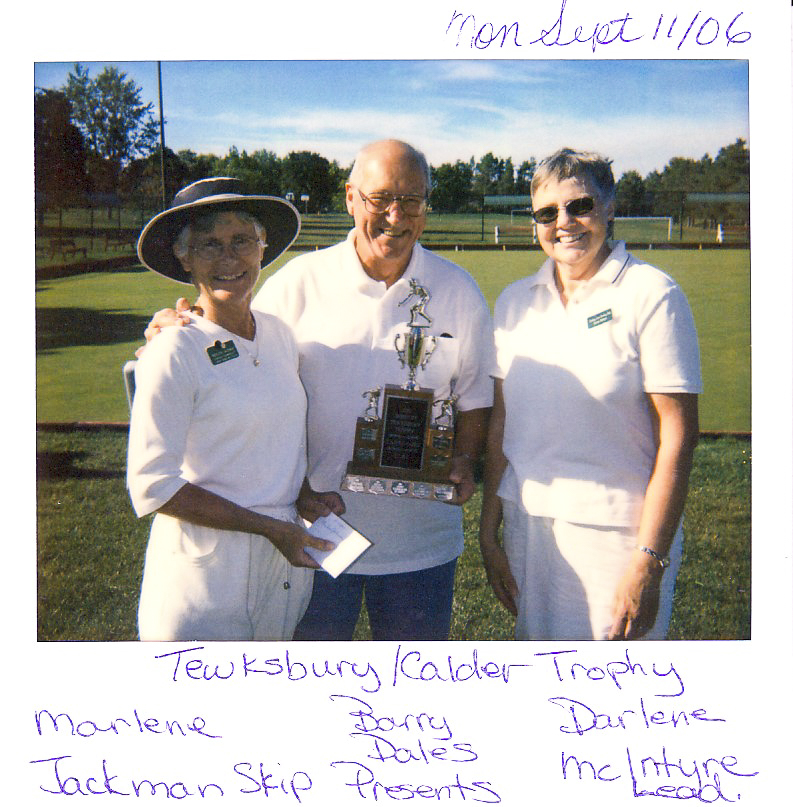 Mon Sept 11/06
Tewksbury/Calder Trophy
Marlene Barry Darlene
Dales
Jackman Skip Presents McIntyre
Lead.